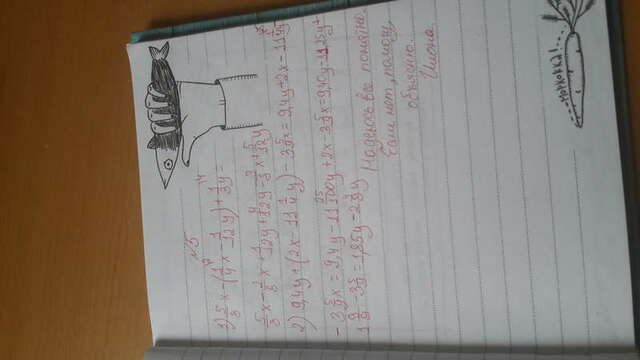 №5
1) 5/3 x - (1/4 x - 1/12 y) + 1/3 y =
5/3 x - 1/5 x + 1/12 y + 4/12 y = 3/3 x + 5/12 y
2) 9,4y + (2x - 11 1/4 y) - 3 5/9 x = 9,4y + 2x - 11
- 3 5/9 x = 9,4y - 11 25/100 y + 2x - 3 5/9 x = 9,40y - 11,25y +
1 9/9 - 3 5/9 = 1,85y - 2 4/9 y
Надеюсь все понятно.
Если нет, помогу,
объясню.
Илона.
МОРКОВКА!